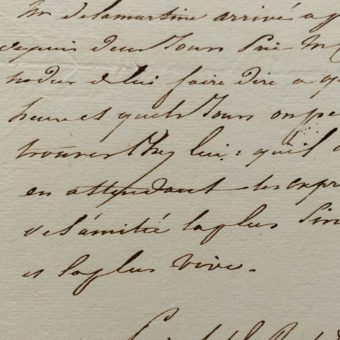 Mr delamartine arrivé a p
depuis deux jours prie M
nodier de lui faire dire a q
heure et quels jours on pe
trouver chez lui : qu'il
en attendant les expr
de l'amitié la plus sin
et la plus vive.